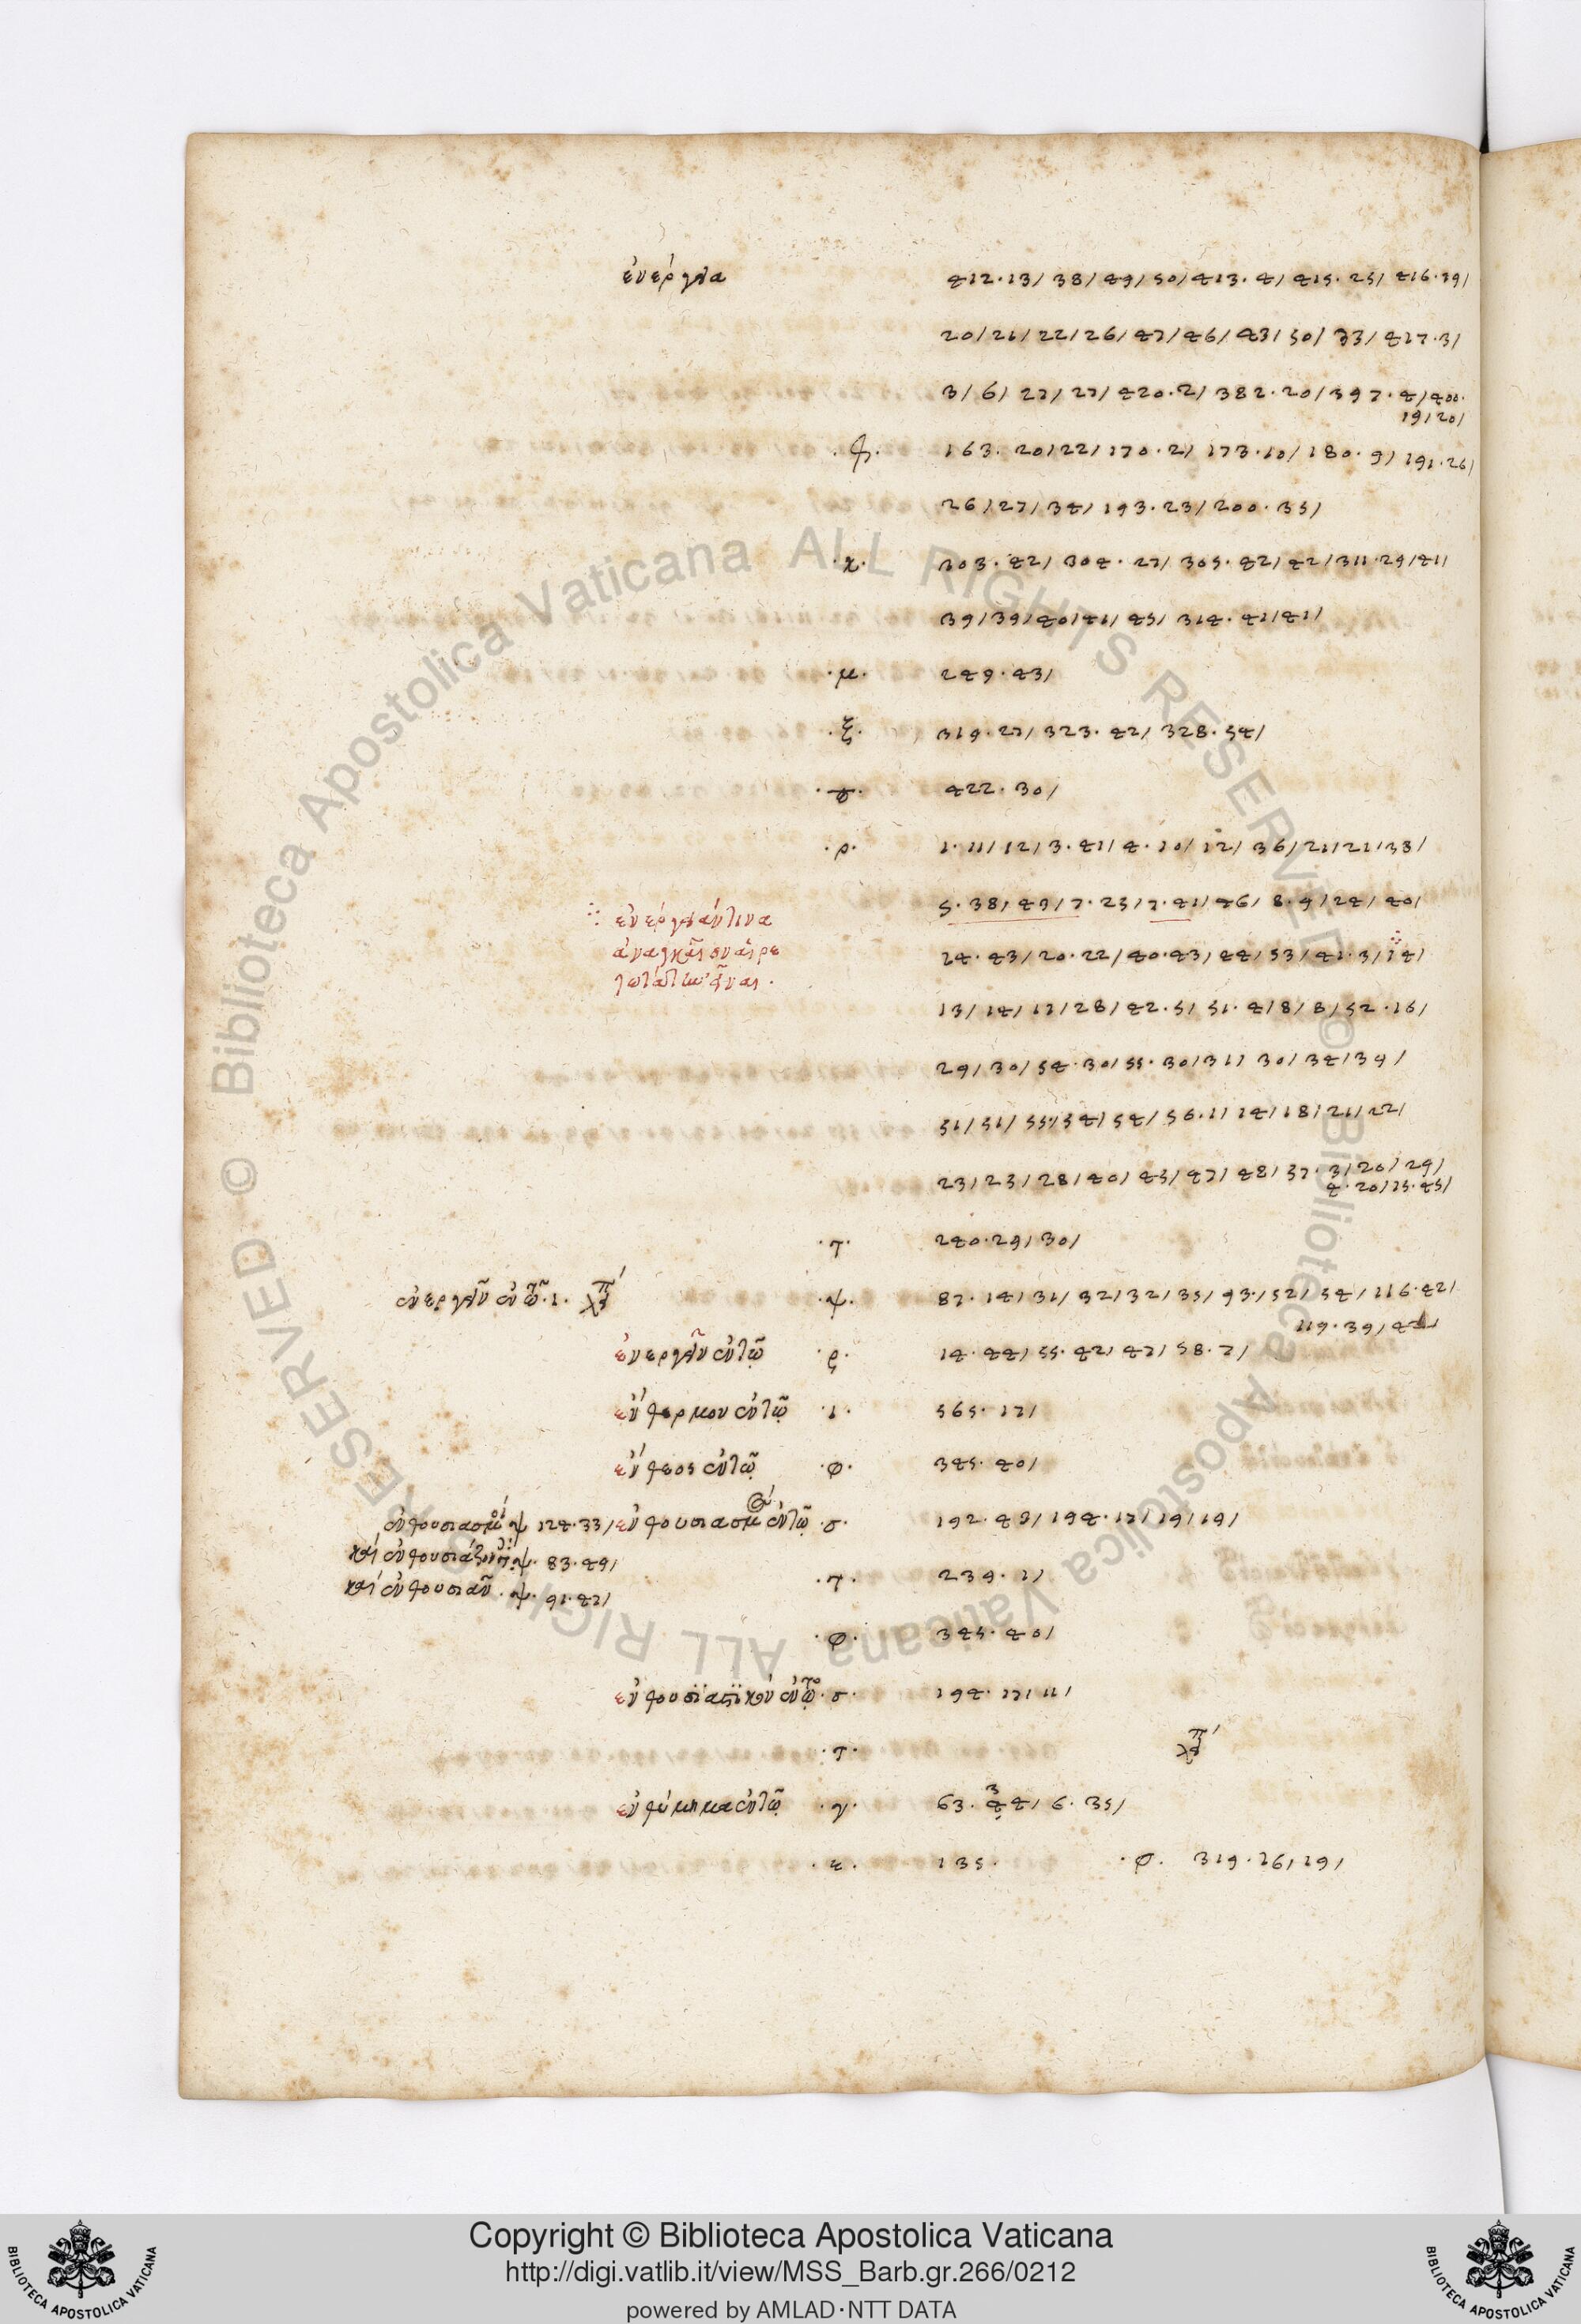 ἐνεργεία 412·13/ 38/ 49/ 50/ 413·4/ 415·25/ 416·19/
20/ 21/ 22/ 26/ 47/ 46/ 43/ 50/ 33/ 417·3/
3/ 6/ 27/ 27/ 420·2/ 382·20/ 397·4/ 400·
19/ 20/
163·20/ 22/ 170·2/ 173·10/ 180·9/ 191·26/
26/ 27/ 34/ 193·23/ 200·35/
·χ· 303·42/ 304·27/ 305·42/ 42/ 311·29/ 41/
39/ 39/ 40/ 41/ 45/ 314·41/ 41/
·μ· 249·43/
·ξ· 319·27/ 323·42/ 328·54/
422·30/
·ρ· 1·11/ 12/ 3·41/ 4·10/ 12/ 36/ 21/ 21/ 33/
5·38/ 49/ 7·25/ 7·41/ 46/ 8·9/ 24/ 40/
ἐνεργείαν τινα
14·43/ 20·22/ 40·43/ 44/ 53/ 41·3/ 14/
13/ 14/ 17/ 28/ 42·5/ 51·4/ 8/ 8/ 52·16/
29/ 30/ 54·30/ 55·30/ 31/ 30/ 34/ 34/
51/ 51/ 55/ 54/ 54/ 56·1/ 14/ 18/ 21/ 22/
23/ 23/ 28/ 40/ 45/ 47/ 48/ 57·3/ 20/ 29/
4·20/ 15·45/
·τ· 240·29/ 30/
ἐνεργεῖν ἐν τῷ·ι· ·ψ· 87·14/ 31/ 32/ 32/ 35/ 93·/ 52/ 54/ 116·42/
119·39/
ἐνεργεῖν ἐν τῷ ·ρ· 14·44/ 55·42/ 47/ 58·7/
ἔνθερμον ἐν τῷ ·ι· 565·17/
ἔνθεος ἐν τῷ ·φ· 345·40/
ἐνθουσιασμὸς ψ 124·33/ ἐνθουσιασμὸς ἐν τῷ ·σ· 192·49/ 194·17/ 19/ 19/
καὶ ·ψ· 83·49/
·τ· 239·1/
καὶ ἐνθουσιᾶν ·ψ· 91·42/
·φ· 345·40/
ἐνθουσιαστικὸν ἐν τῷ ·σ· 194·17/ 11/
·τ·
ἐνθύμημα ἐν τῷ ·γ· 63· 4/ 6·35/
·ε· 135· ·φ· 319·16/ 19/
Copyright © Biblioteca Apostolica Vaticana
http://digi.vatlib.it/view/MSS_Barb.gr.266/0212
powered by AMLAD·NTT DATA